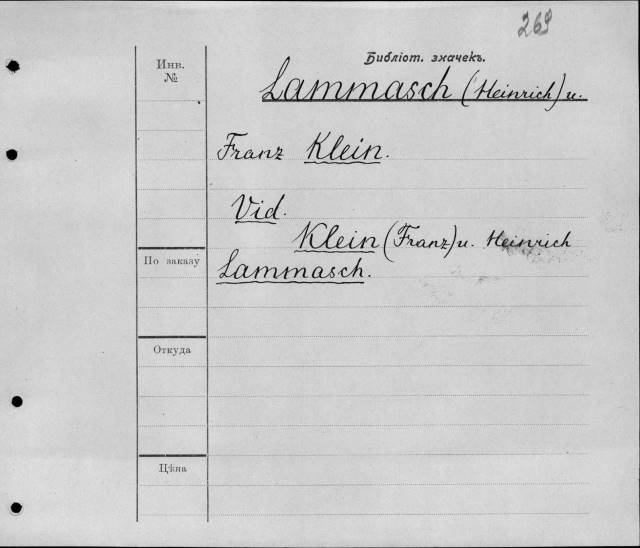 269
Инв.
№
Библіот. значекъ.
Lammasch (Heinrich) u.
Franz Klein.
Vid.
Klein (Franz) u. Heinrich
По заказу
Lammasch.
Откуда
Цѣна